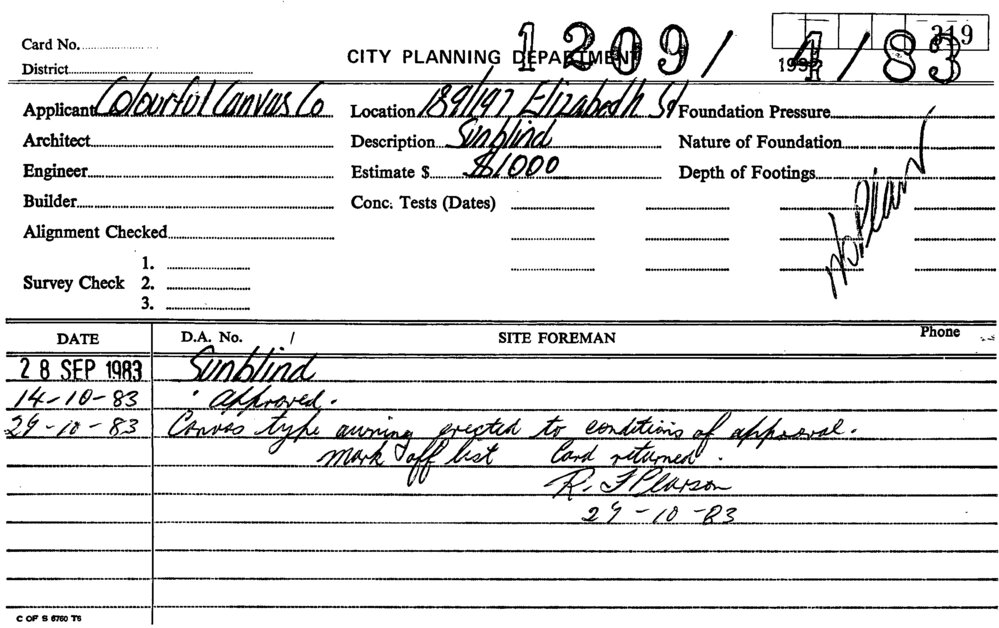 1209/ 4/83
319
Card No.
CITY PLANNING DEPARTMENT
District
Applicant Colourful Canvas Co
Location 189/197 Elizabeth St
Foundation Pressure
Architect
Description Sunblind
Nature of Foundation
Engineer
Estimate $ $1000
Depth of Footings
Builder
Conc. Tests (Dates)
No Plan
Alignment Checked
1.
Survey Check 2.
3.
DATE D.A. No. / SITE FOREMAN Phone
28 SEP 1983 Sunblind
14-10-83 approved.
29-10-83 Canvas type awning erected to conditions of approval.
mark off list Card returned.
R. F Pearson
29-10-83
C OF S 6760 T6